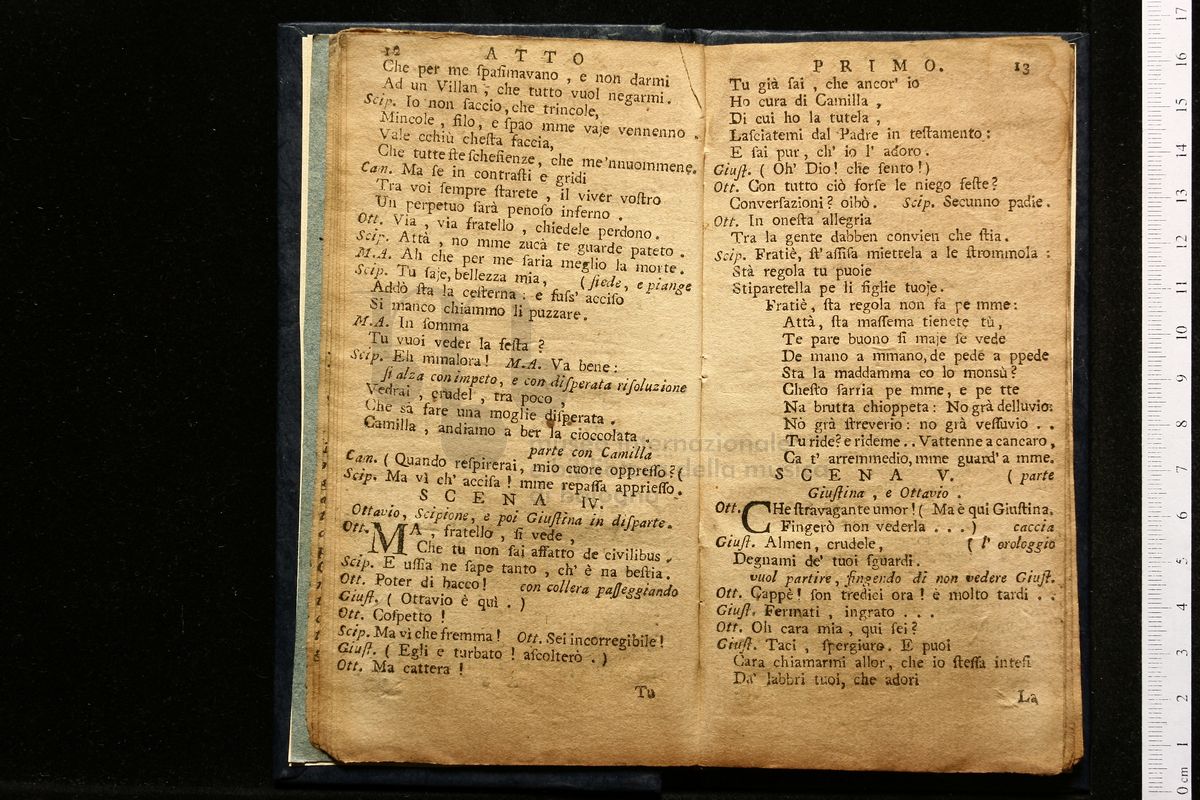 12 ATTO
Che per me ſpaſimavano , e non darmi
Ad un Villan , che tutto vuol negarmi.
Scip. Io non ſaccio, che trincole,
Mincole , filo, e ſpao mme vaje vennenno .
Vale cchiù cheſta faccia,
Che tutte ſte ſcheſienze, che me'nnuommene.
Can. Ma ſe in contraſti e gridi
Tra voi ſempre ſtarete , il viver voſtro
Un perpetuo ſarà penoſo inferno .
Ott. Via , via fratello , chiedele perdono.
Scip. Attà , no mme zucà te guarde pateto .
M.A. Ah che per me ſaria meglio la morte.
Scip. Tu ſaje, bellezza mia, ( ſiede, e piange
Addò ſta la ceſterna : e fuſs' acciſo
Si manco chiammo li puzzare.
M.A. In ſomma
Tu vuoi veder la feſta ?
Scip. Eh mmalora! M.A. Va bene :
ſi alza con impeto, e con diſperata riſoluzione
Vedrai , crudel , tra poco ,
Che sà fare una moglie diſperata .
Camilla , andiamo a ber la cioccolata .
parte con Camilla
Can. ( Quando reſpirerai, mio cuore oppreſſo ? (
Scip. Ma vì ch' acciſa ! mme repaſſa apprieſſo.
SCENA IV.
Ottavio, Scipione, e poi Giuſtina in diſparte.
Ott. MA , fratello , ſi vede ,
Che tu non ſai affatto de civilibus .
Scip. E uſſia ne ſape tanto , ch' è na beſtia.
Ott. Poter di bacco! con collera paſſeggiando
Giuſt. ( Ottavio è quì . )
Ott. Coſpetto !
Scip. Ma vì che fremma ! Ott. Sei incorregibile !
Giuſt. ( Egli e turbato ! aſcolterò . )
Ott. Ma cattera !
Tu
PRIMO. 13
Tu già ſai , che ancor' io
Ho cura di Camilla ,
Di cui ho la tutela ,
Laſciatemi dal Padre in teſtamento :
E ſai pur , ch' io l' adoro .
Giuſt. ( Oh' Dio! che ſento ! )
Ott. Con tutto ciò forſe le niego feſte ?
Converſazioni ? oibò . Scip. Secunno padie.
Ott. In oneſta allegria
Tra la gente dabben convien che ſtia.
Scip. Fratiè, ſt' aſſiſa miettela a le ſtrommola :
Stà regola tu puoie
Stiparetella pe li figlie tuoje.
Fratiè, ſta regola non fa pe mme :
Attà, ſta maſſema tienete tù,
Te pare buono ſi maje ſe vede
De mano a mmano, de pede a ppede
Sta la maddamma co lo monsù ?
Cheſto ſarria pe mme, e pe tte
Na brutta chioppeta : No grà delluvio:
Nò grà ſtreverio: no grà veſſuvio . .
Tu ride ? e rideme . . Vattenne a cancaro ,
Ca t' arremmedio, mme guard' a mme.
SCENA V. ( parte
Giuſtina , e Ottavio .
Ott. CHe ſtravagante umor ! ( Ma è qui Giuſtina,
Fingerò non vederla . . . ) caccia
Giuſt. Almen, crudele, ( l' orologgio
Degnami de' tuoi ſguardi.
vuol partire, fingendo di non vedere Giuſt.
Ott. Cappè! ſon tredici ora ! è molto tardi . .
Giuſt. Fermati , ingrato . . .
Ott. Oh cara mia , qui ſei ?
Giuſt. Taci , ſpergiuro. E puoi
Cara chiamarmi allor, che io ſteſſa inteſi
Da' labbri tuoi, che adori
La